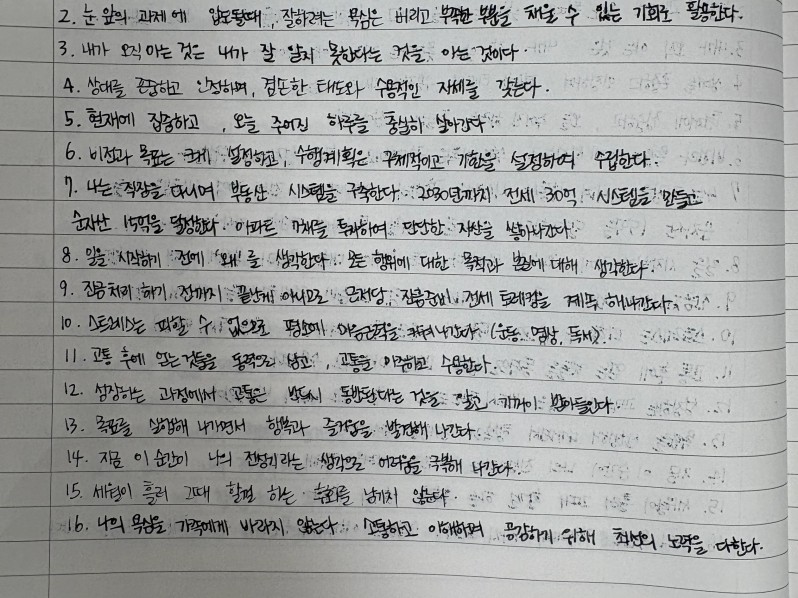 2. 눈 앞의 과제에 압도될때, 잘하려는 욕심은 버리고 부족한 부분을 채울 수 있는 기회로 활용한다.
3. 내가 오직 아는 것은 내가 잘 알지 못한다는 것을 아는 것이다.
4. 상대를 존중하고 인정하며, 겸손한 태도와 수용적인 자세를 갖는다.
5. 현재에 집중하고, 오늘 주어진 하루를 충실히 살아간다.
6. 비전과 목표는 크게 설정하고, 수행계획은 구체적이고 기한을 설정하여 수립한다.
7. 나는 직장을 다니며 부동산 시스템을 구축한다. 2030년까지 전세 30억 시스템을 만들고
순자산 15억을 달성한다. 아파트 7채를 투자하여 단단한 자산을 쌓아나간다.
8. 일을 시작하기 전에 '왜'를 생각한다. 모든 행위에 대한 목적과 본질에 대해 생각한다.
9. 잔금처리 하기 전까지 끝난게 아니므로 잔금준비, 전세 트레킹을 계속 해나간다.
10. 스트레스는 피할 수 없으므로 평소에 마음근력을 키워나간다. (운동, 명상, 독서)
11. 고통 후에 얻는 것들을 동력으로 삼고, 고통을 수용한다.
12. 성장하는 과정에서 고통은 반드시 동반된다는 것을 알고 기꺼이 받아들인다.
13. 목표를 실행해 나가면서 행복과 즐거움을 발견해 나간다.
14. 지금 이 순간이 나의 전성기라는 생각으로 어려움을 극복해 나간다.
15. 세월이 흘러 그때 할걸 하는 후회를 남기지 않는다.
16. 나의 욕심을 가족에게 바라지 않는다. 소통하고 이해하며 공감하기 위해 최선의 노력을 다한다.